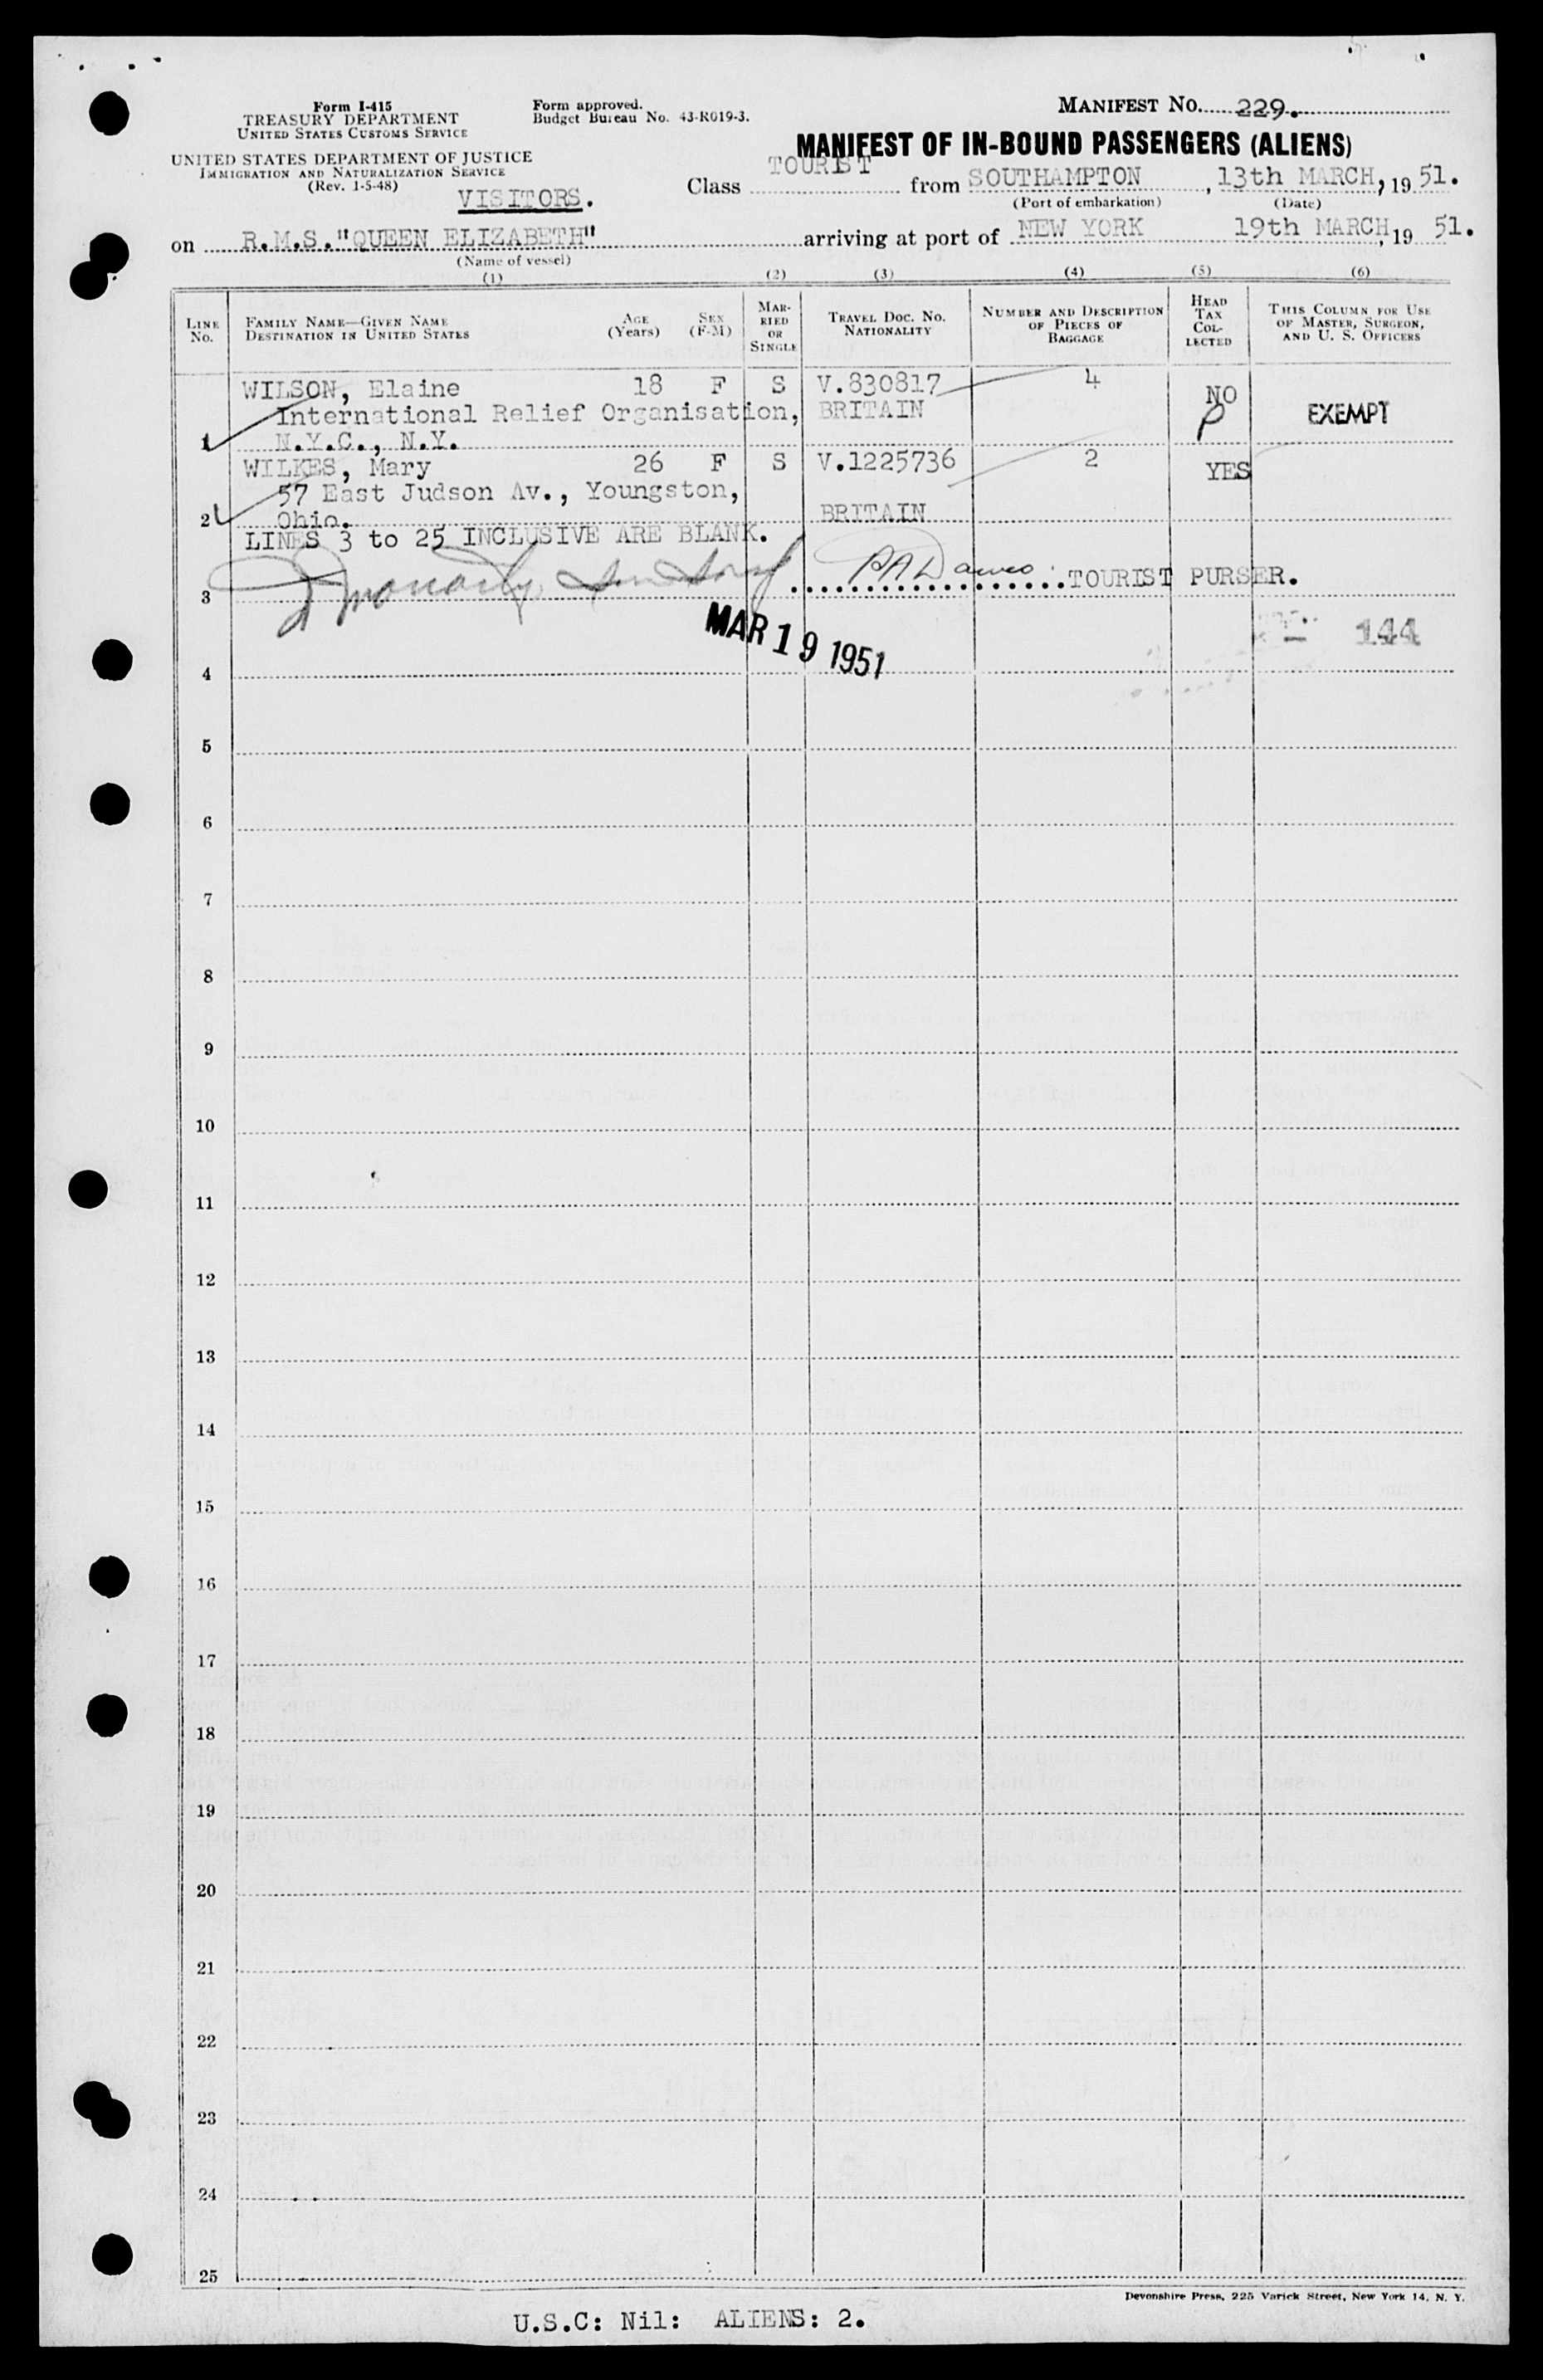 Form I-415
TREASURY DEPARTMENT
UNITED STATES CUSTOMS SERVICE
UNITED STATES DEPARTMENT OF JUSTICE
IMMIGRATION AND NATURALIZATION SERVICE
(Rev. 1-5-48)
VISITORS.
Form approved.
Budget Bureau No. 43-R019-3.
MANIFEST No. 229.
MANIFEST OF IN-BOUND PASSENGERS (ALIENS)
Class TOURIST from SOUTHAMPTON, 13th MARCH, 19 51.
(Port of embarkation) (Date)
on R.M.S."QUEEN ELIZABETH" arriving at port of NEW YORK 19th MARCH, 19 51.
(Name of vessel)
(1) (2) (3) (4) (5) (6)
LINE No. FAMILY NAME—GIVEN NAME DESTINATION IN UNITED STATES AGE (Years) SEX (F-M) MARRIED OR SINGLE TRAVEL DOC. NO. NATIONALITY NUMBER AND DESCRIPTION OF PIECES OF BAGGAGE HEAD TAX COLLECTED THIS COLUMN FOR USE OF MASTER, SURGEON, AND U. S. OFFICERS
WILSON, Elaine 18 F S V.830817 4 NO
International Relief Organisation, BRITAIN EXEMPT
1 N.Y.C., N.Y.
WILKES, Mary 26 F S V.1225736 2 YES
57 East Judson Av., Youngston,
2 Ohio. BRITAIN
LINES 3 to 25 INCLUSIVE ARE BLANK.
3 TOURIST PURSER.
MAR 19 1951
144
4
5
6
7
8
9
10
11
12
13
14
15
16
17
18
19
20
21
22
23
24
25
Devonshire Press, 225 Varick Street, New York 14, N. Y.
U.S.C: Nil: ALIENS: 2.